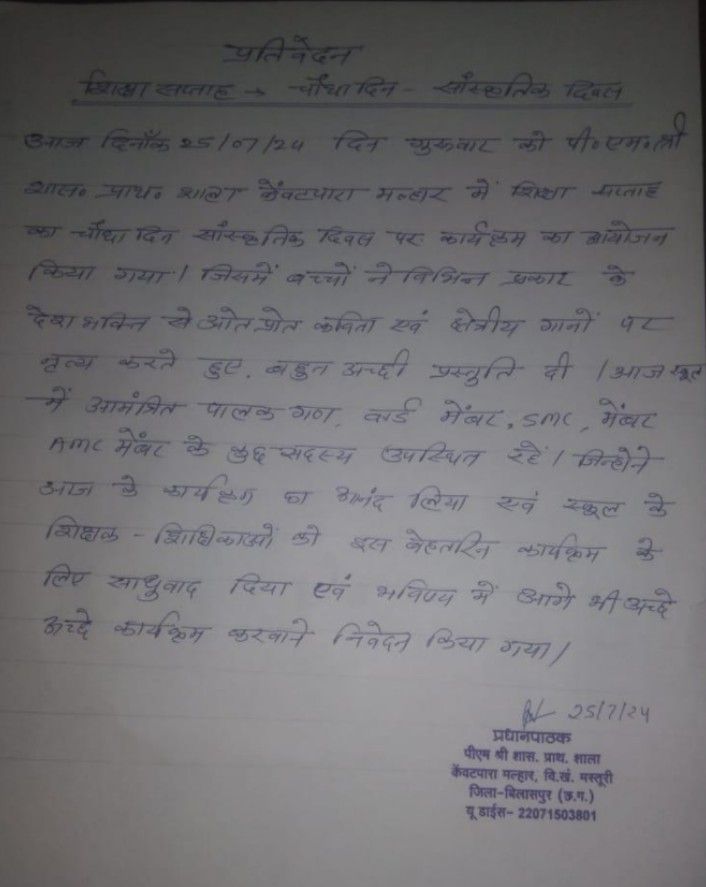 प्रतिवेदन
शिक्षा सप्ताह → चौथा दिन - सांस्कृतिक दिवस
आज दिनाँक 25/07/24 दिन गुरुवार को पी॰एम॰श्री
शास॰ प्राथ॰ शाला केंवटपारा मल्हार में शिक्षा सप्ताह
का चौथा दिन सांस्कृतिक दिवस पर कार्यक्रम का आयोजन
किया गया। जिसमें बच्चों ने विभिन्न प्रकार के
देशभक्ति से ओतप्रोत कविता एवं क्षेत्रीय गानों पर
नृत्य करते हुए, बहुत अच्छी प्रस्तुति दी। आज स्कूल
में आमंत्रित पालक गण, वार्ड मेंबर, SMC, मेंबर
AMC मेंबर के कुछ सदस्य उपस्थित रहें। जिन्होने
आज के कार्यक्रम का आनंद लिया एवं स्कूल के
शिक्षक - शिक्षिकाओं को इस बेहतरिन कार्यक्रम के
लिए साधुवाद दिया एवं भविष्य में आगे भी अच्छे
अच्छे कार्यक्रम करवाने निवेदन किया गया।
25/7/24
प्रधानपाठक
पीएम श्री शास. प्राथ. शाला
केंवटपारा मल्हार, वि.खं. मस्तूरी
जिला-बिलासपुर (छ.ग.)
यू डाईस- 22071503801